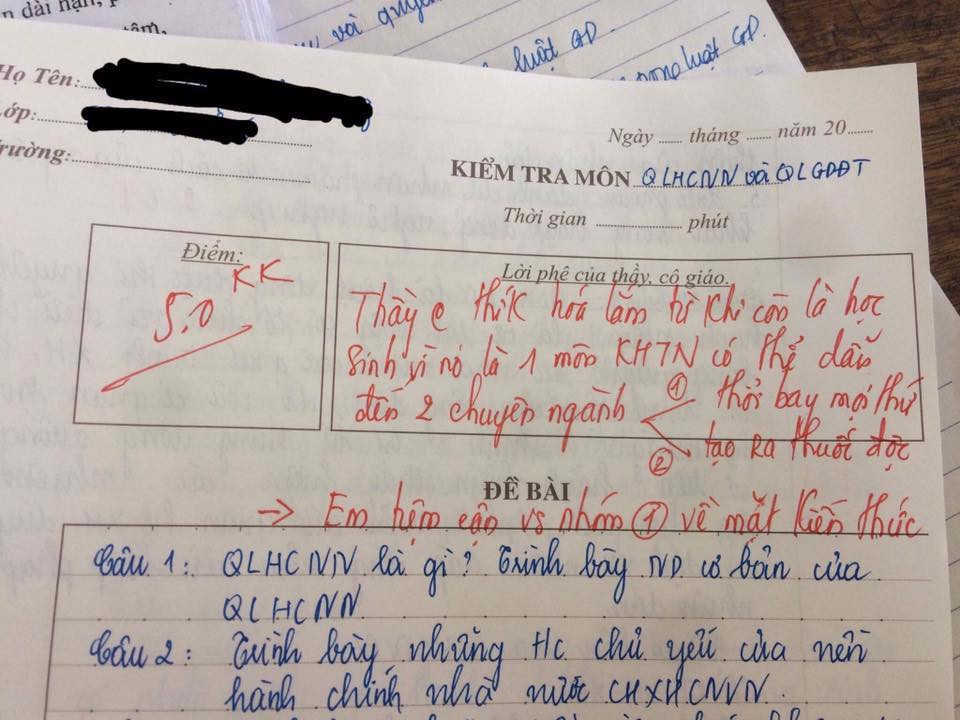 n dài hạn, p
và quyền
luật GD.
tâm,
trong luật GD.
Họ Tên:
Lớp:
rường:
Ngày ...... tháng ...... năm 20......
KIỂM TRA MÔN QLHCNN và QLGDĐT
Thời gian .................. phút
Điểm:
5.0 KK
Lời phê của thầy, cô giáo.
Thầy e thík hoá lắm từ khi còn là học
sinh vì nó là 1 môn KHTN có thể dẫn
đến 2 chuyên ngành ① thổi bay mọi thứ
② tạo ra thuốc độc
ĐỀ BÀI
→ Em hẹm cận vs nhóm ① về mặt kiến thức
Câu 1: QLHCNN là gì? Trình bày ND cơ bản của
QLHCNN
Câu 2: Trình bày những Hc chủ yếu của nền
hành chính nhà nước CHXHCNVN